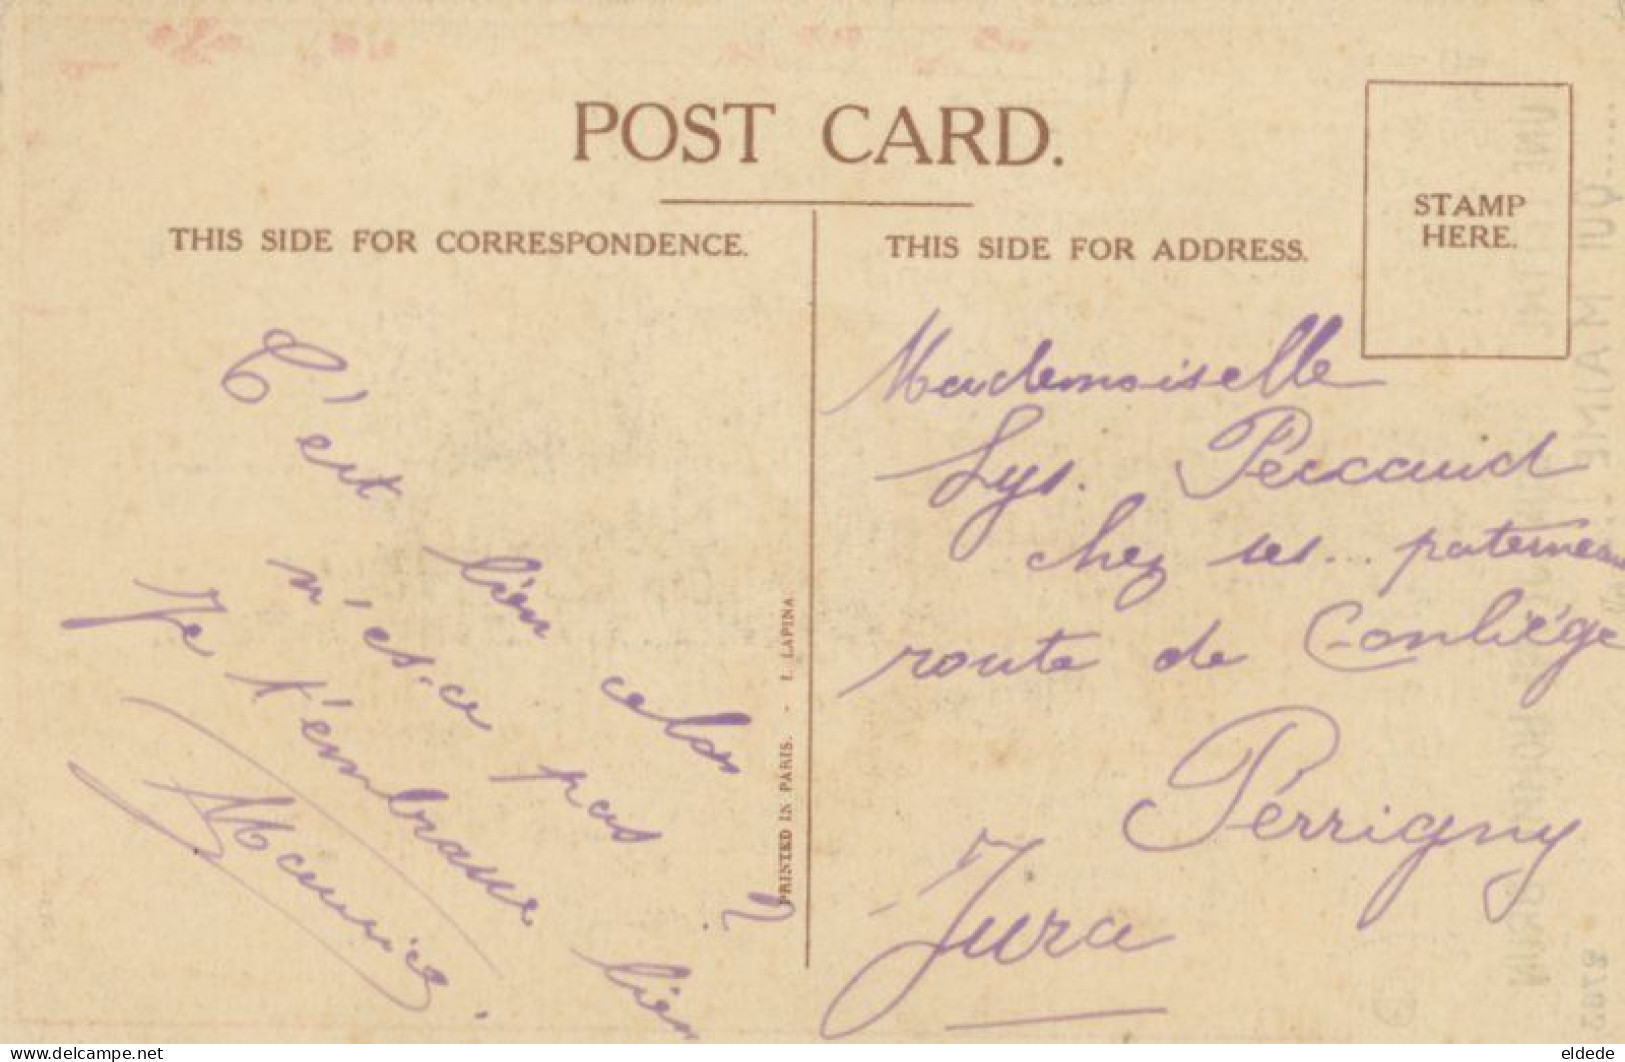 POST CARD.
THIS SIDE FOR CORRESPONDENCE.
THIS SIDE FOR ADDRESS.
STAMP
HERE.
C'est bien cela
n'es-ce pas ?
Je t'embrasse bien
Maurice.
PRINTED IN PARIS. - I. LAPINA
Mademoiselle
Lys.
chez ses..
route de Conliège
Pérrigny
Jura
https://www.delcampe.net
eldede